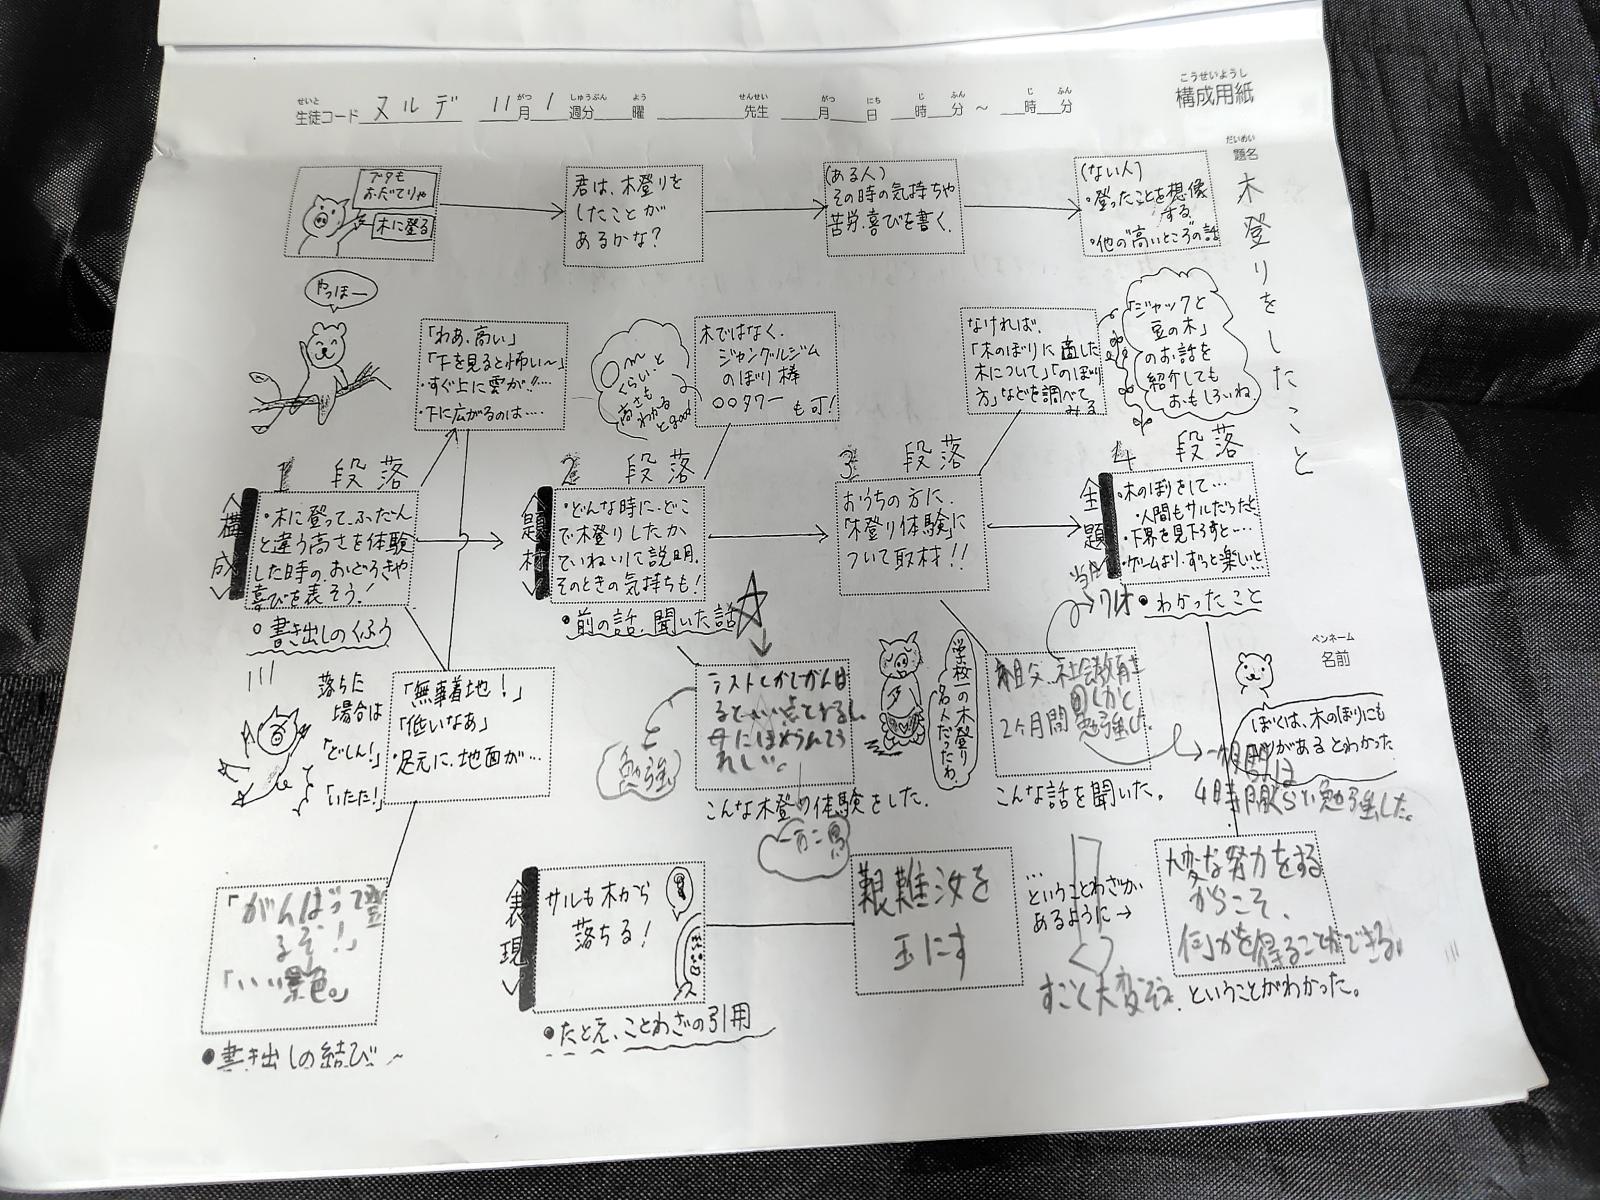 こうせいようし
構成用紙
せいと しゅうぶん よう せんせい がつ にち じ ふん じ ふん
生徒コード ヌルデ 11月1週分 曜 先生 月 日 時 分 ～ 時 分
だいめい
題名
木登りをしたこと
ブタも
おだてりゃ
木に登る
君は、木登りを
したことが
あるかな?
(ある人)
その時の気持ちや
苦労、喜びを書く。
(ない人)
・登ったことを想像
する
・他の"高いところ"の話
やっほー
「わあ、高い」
「下を見ると怖い～」
・すぐ上に雲が!!…
・下に広がるのは….
〇m
くらい・と
高さも
わかる
とgood
木ではなく、
ジャングルジム
のぼり棒
〇〇タワー
も可!
なければ、
「木のぼりに適した
木について」「のぼり
方」などを調べて
みる
「ジャックと
豆の木」
のお話を
紹介しても
おもしろいね。
1 段落
＜構成＞
・木に登って、ふだん
と違う高さを体験
した時の、おどろきや
喜びを表そう!
○書き出しのくふう
2 段落
＜題材＞
・どんな時に・どこ
で木登りしたか
ていねいに説明。
そのときの気持ちも!
・前の話、聞いた話
3 段落
おうちの方に、
「木登り体験」に
ついて取材!!
4 段落
主題
・木のぼりをして…
・人間もサルだったと
・下界を見下ろすと…
・ゲームより、ずっと楽しいと
●わかったこと
落ちた
場合は
「どしん!」
「いたた!」
「無事着地!」
「低いなあ」
・足元に、地面が…
勉強
母にほめられてう
れしい。
こんな木登り体験をした。
学校一の木登り
名人だったわ。
祖父、社会教育主
2ヶ月間勉強した。
こんな話を聞いた。
ペンネーム
名前
ぼくは、木のぼりにも
があるとわかった
4時間くらい勉強した。
「がんばって登
るぞ!」
「いい景色。」
●書き出しの結び～
＜表現＞
サルも木から
落ちる!
●たとえ、ことわざの引用
一石二鳥
艱難汝を
玉にす
…
ということわざが
あるように→
すごく大変
大変な努力をする
からこそ、
何かを得ることができる。
ということがわかった。